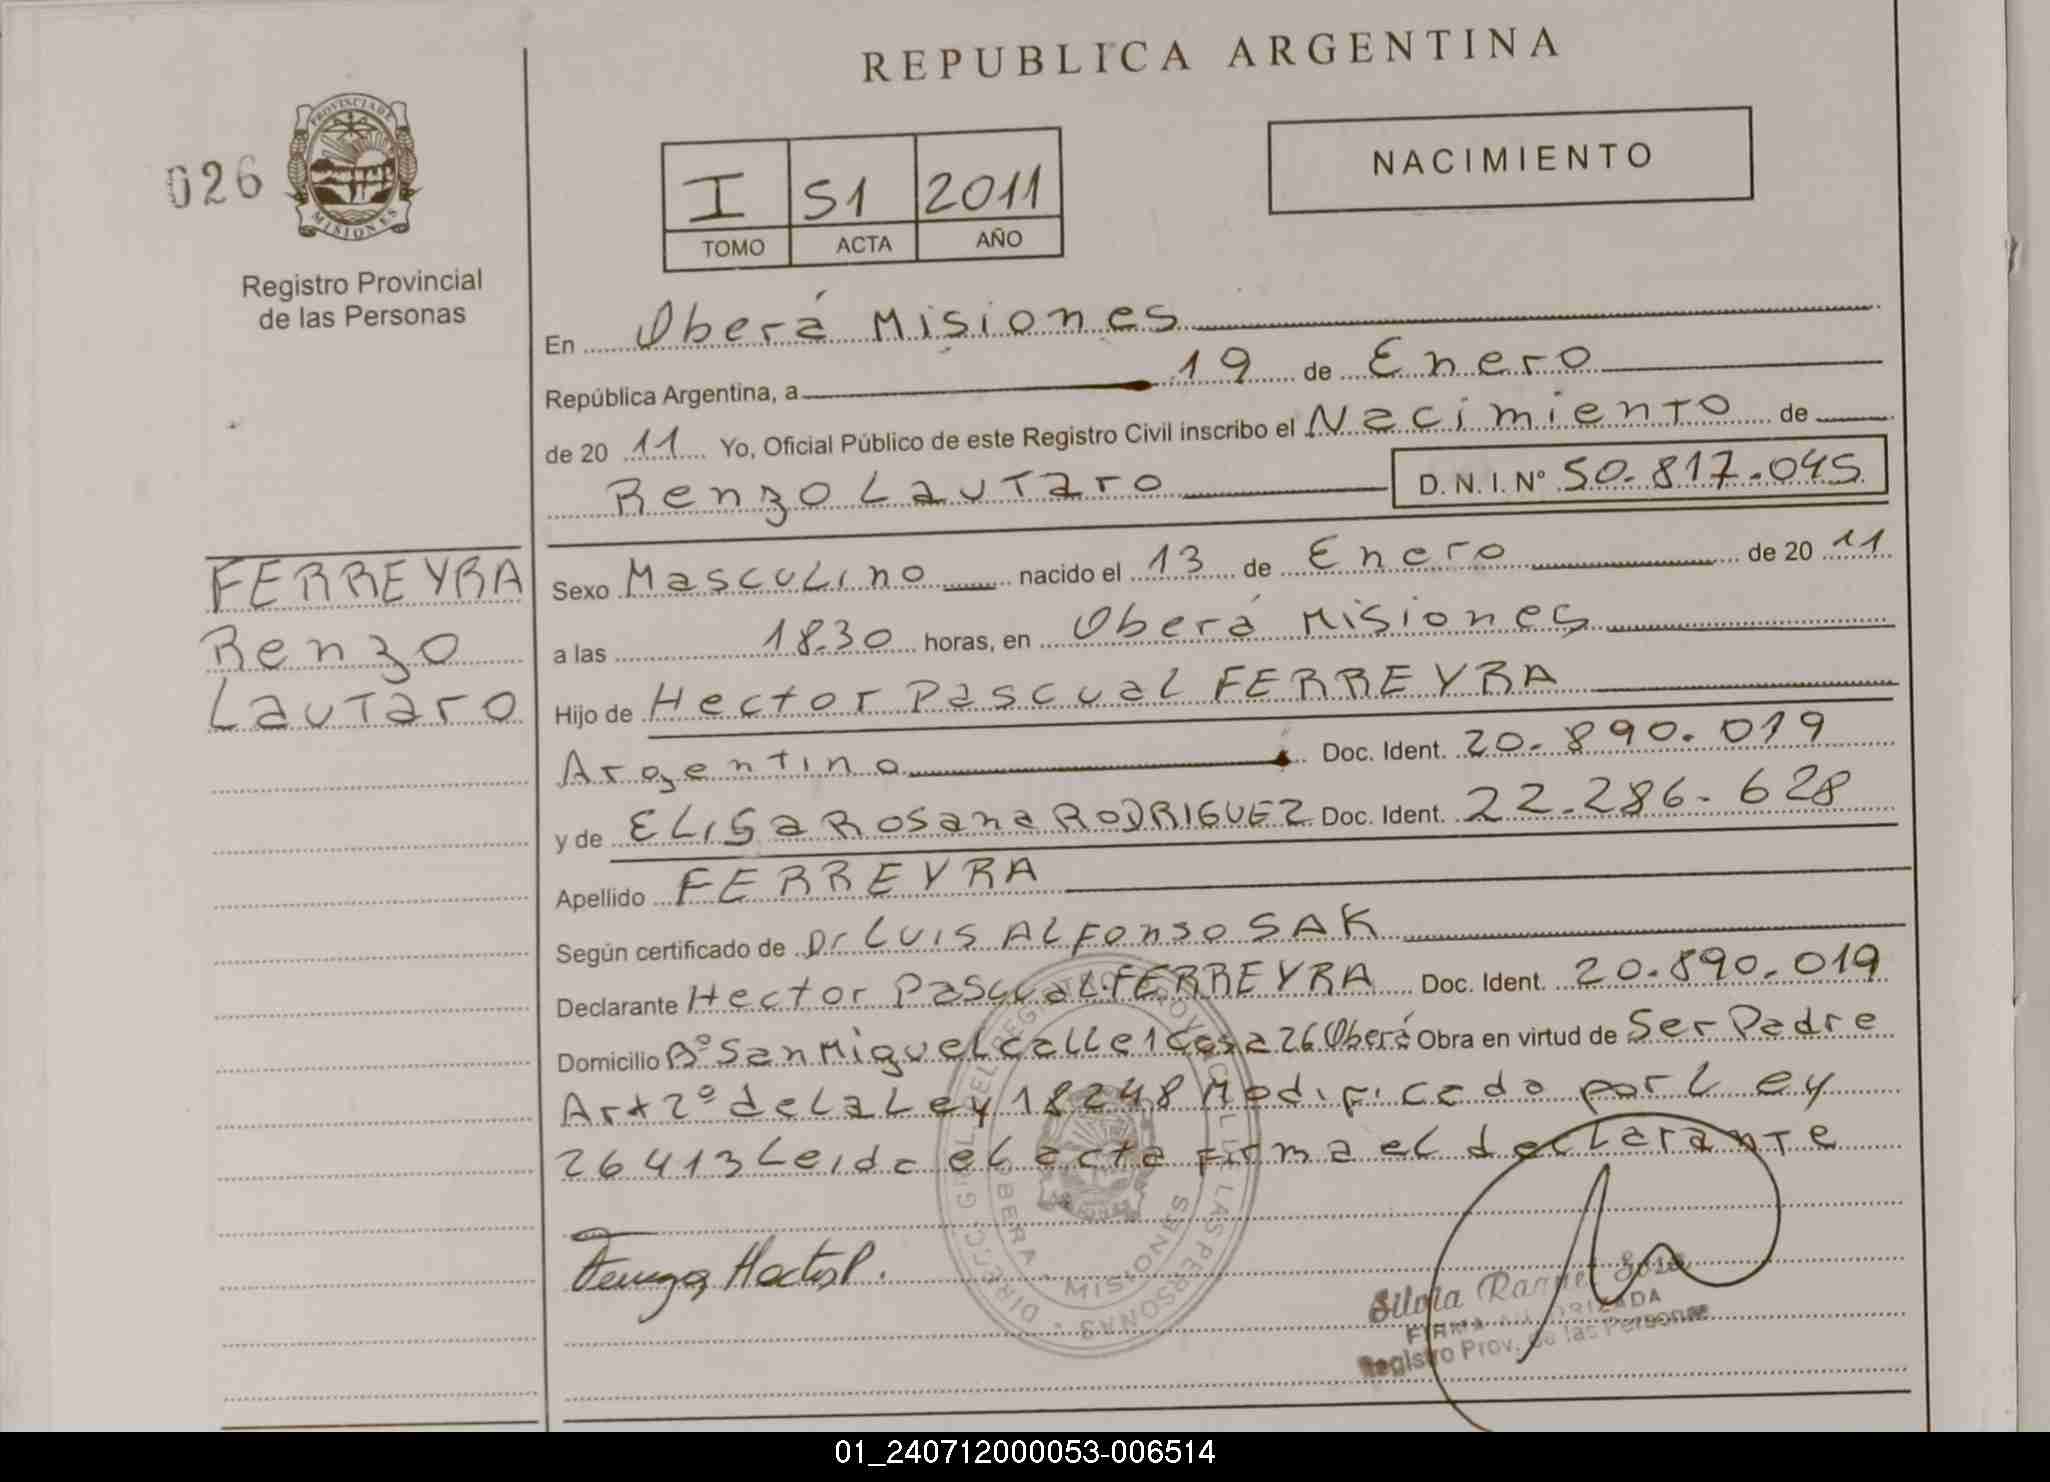 REPUBLICA ARGENTINA
NACIMIENTO
026
PROVINCIA DE
MISIONES
Registro Provincial
de las Personas
I S1 2011
TOMO ACTA AÑO
En Oberá Misiones
República Argentina, a 19 de Enero
de 20 11 Yo, Oficial Público de este Registro Civil inscribo el Nacimiento de
Renzo Lautaro D. N. I. Nº 50.817.045
FERREYRA
Renzo
Lautaro
Sexo Masculino nacido el 13 de Enero de 20 11
a las 18.30 horas, en Oberá Misiones
Hijo de Hector Pascual FERREYRA
Argentino Doc. Ident. 20.890.019
y de ELISa Rosana RODRIGUEZ Doc. Ident. 22.286.628
Apellido FERREYRA
Según certificado de Dr LUIS ALFonso SAK
Declarante Hector Pascual FERREYRA Doc. Ident. 20.890.019
Domicilio Bº San Miguel calle 1 Casa 26 Oberá Obra en virtud de Ser Padre
Art 2º de la Ley 18248 Modificado por Ley
26413 Leida el acta firma el declarante
Hector P.
DIRECC. GRAL. DEL REGISTRO PROVINCIAL DE LAS PERSONAS
OBERA MISIONES
Silvia Raquel Sosa
FIRMA AUTORIZADA
Registro Prov. de las Personas
01_240712000053-006514